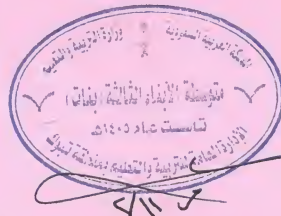 المملكة العربية السعودية
وزارة التربية والتعليم
متوسطة الأبناء الثالثة (بنات)
تأسست عام ١٤٠٥هـ
الإدارة العامة للتربية والتعليم بمنطقة تبوك